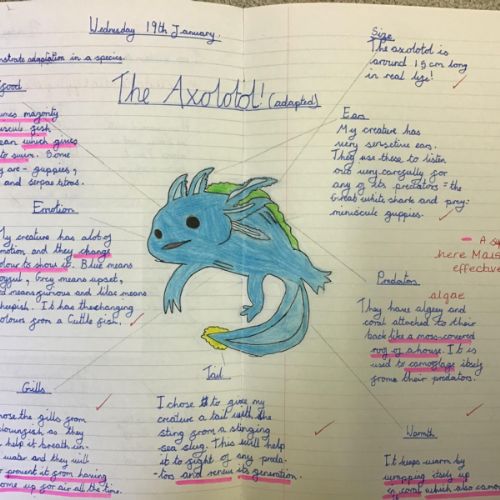 Wednesday 19th January.
nstrate adaptation in a species.
The Axolotol! (adapted)
Size
The axolotol is
around 15cm long
in real life!
Food
majority
fish
ean which gives
to swim. Some
y are - guppies,
and
Ears
My creature has
very sensitive ears.
They use these to listen
out very carefully for
any of its predators = the
Great white shark and prey =
minuscule guppies.
Emotion
My creature has alot of
motion and they change
colour to show it. Blue means
joyful, Grey means upset,
ed means furious and lilac means
sheepish. I got the changing
colours from a Cuttle fish.
A s
here Mais
effective
Predators
algae
They have algeey and
coral attached to their
back like a moss-covered
roof of a house. It is
used to camoflage itself
frome their predators.
Gills
hose the gills from
clownfish as they
help it breath in-
water and they will
prevent it from having
ome up for air all the time.
Tail
I chose to give my
creature a tail with the
sting from a stinging
sea slug. This will help
it to fight of any preda-
tors and renew its generation.
Warmth
It keeps warm by
wrapping itself up
in coral which also camo